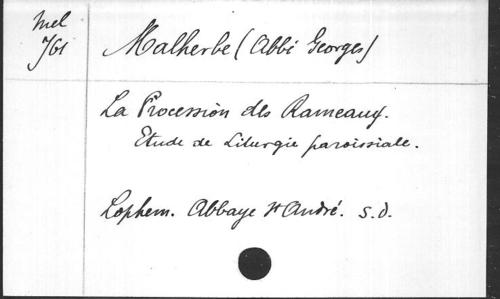 Mel
761
Malherbe (Abbé Georges)
La Procession des Rameaux.
Etude de Liturgie paroissiale.
Lophem. Abbaye St André. s.d.